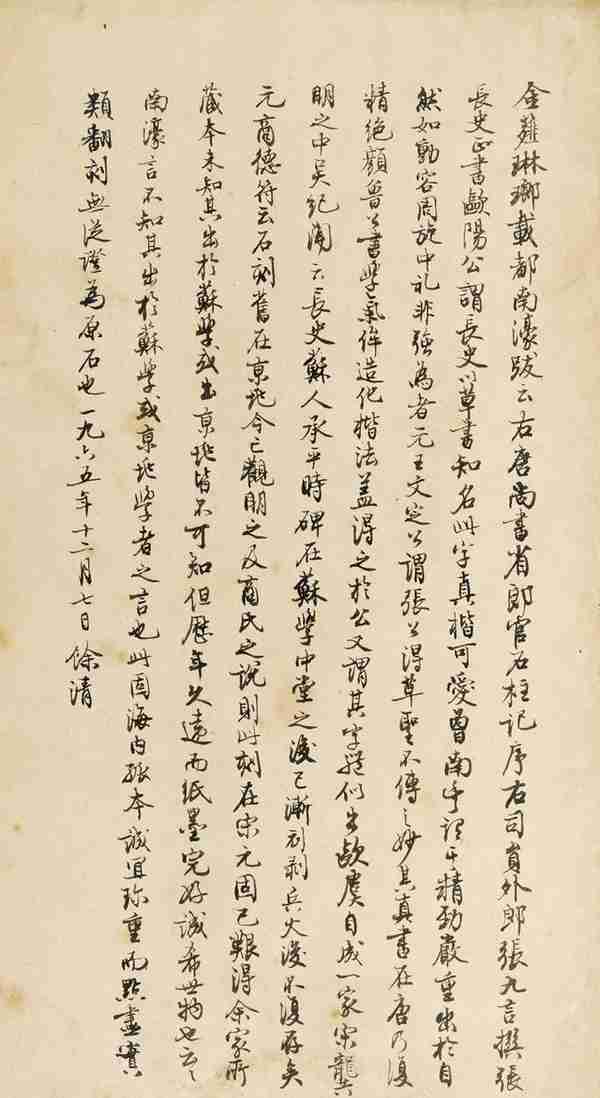 金薤琳瑯載都南濠跋云右唐尚書省郎官石柱記序右司員外郎張九言撰張
長史正書歐陽公謂長史以草書知名此字真楷可愛曾南丰謂其精勁嚴重出於自
然如動容周旋中礼非強為者元王文定公謂張公得草聖不傳之妙其真書在唐乃復
精絕顏魯公書學氣侔造化楷法蓋得之於公又謂其字程似出歐虞自成一家宋龔
明之中吳紀聞云長史蘇人承平時碑在蘇學中堂之後已漸刓剥兵火後不復存矣
元商德符云石刻舊在京兆今已觀明之及商氏之說則此刻在宋元固已艱得余家所
藏本未知其出於蘇學或出京兆皆不可知但歷年久遠而紙墨完好誠希世物也云云
南濠言不知其出於蘇學或京兆學者之言也此固海内孤本誠宜珍重而點畫實
類翻刻無從證為原石也一九六五年十二月七日餘清